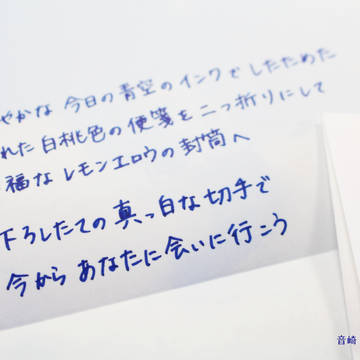 やかな 今日の青空のインクでしたためた
れた 白桃色の便箋を二つ折りにして
福なレモンエロウの封筒へ
下ろしたての真っ白な切手で
今からあなたに会いに行こう
音崎